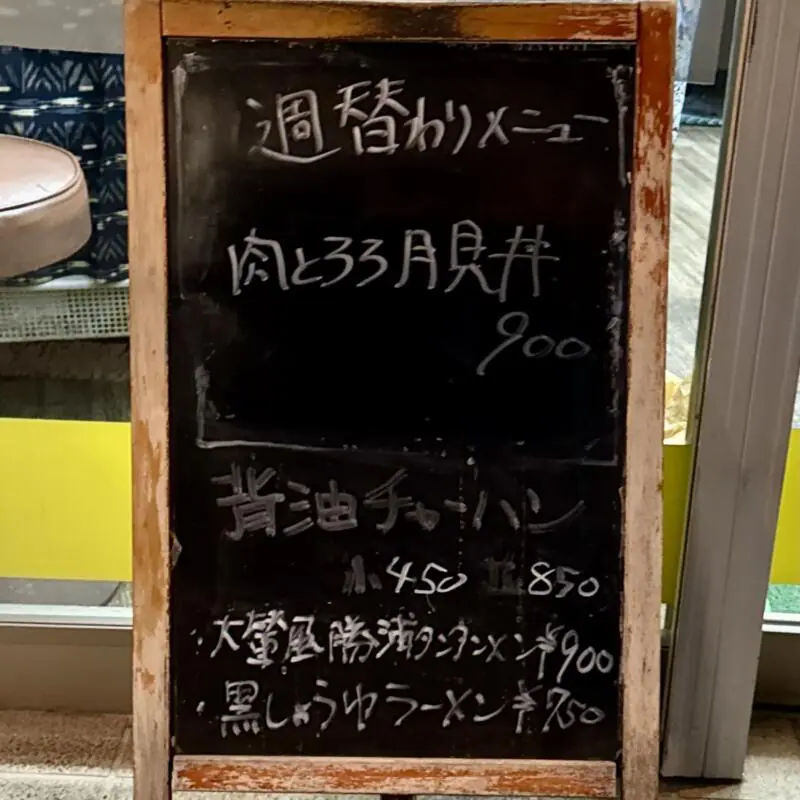 週替わりメニュー
肉とろろ月見丼
900
背油チャーハン
小 450 並 850
・大輦風勝浦タンタンメン ¥900
・黒しょうゆラーメン ¥750